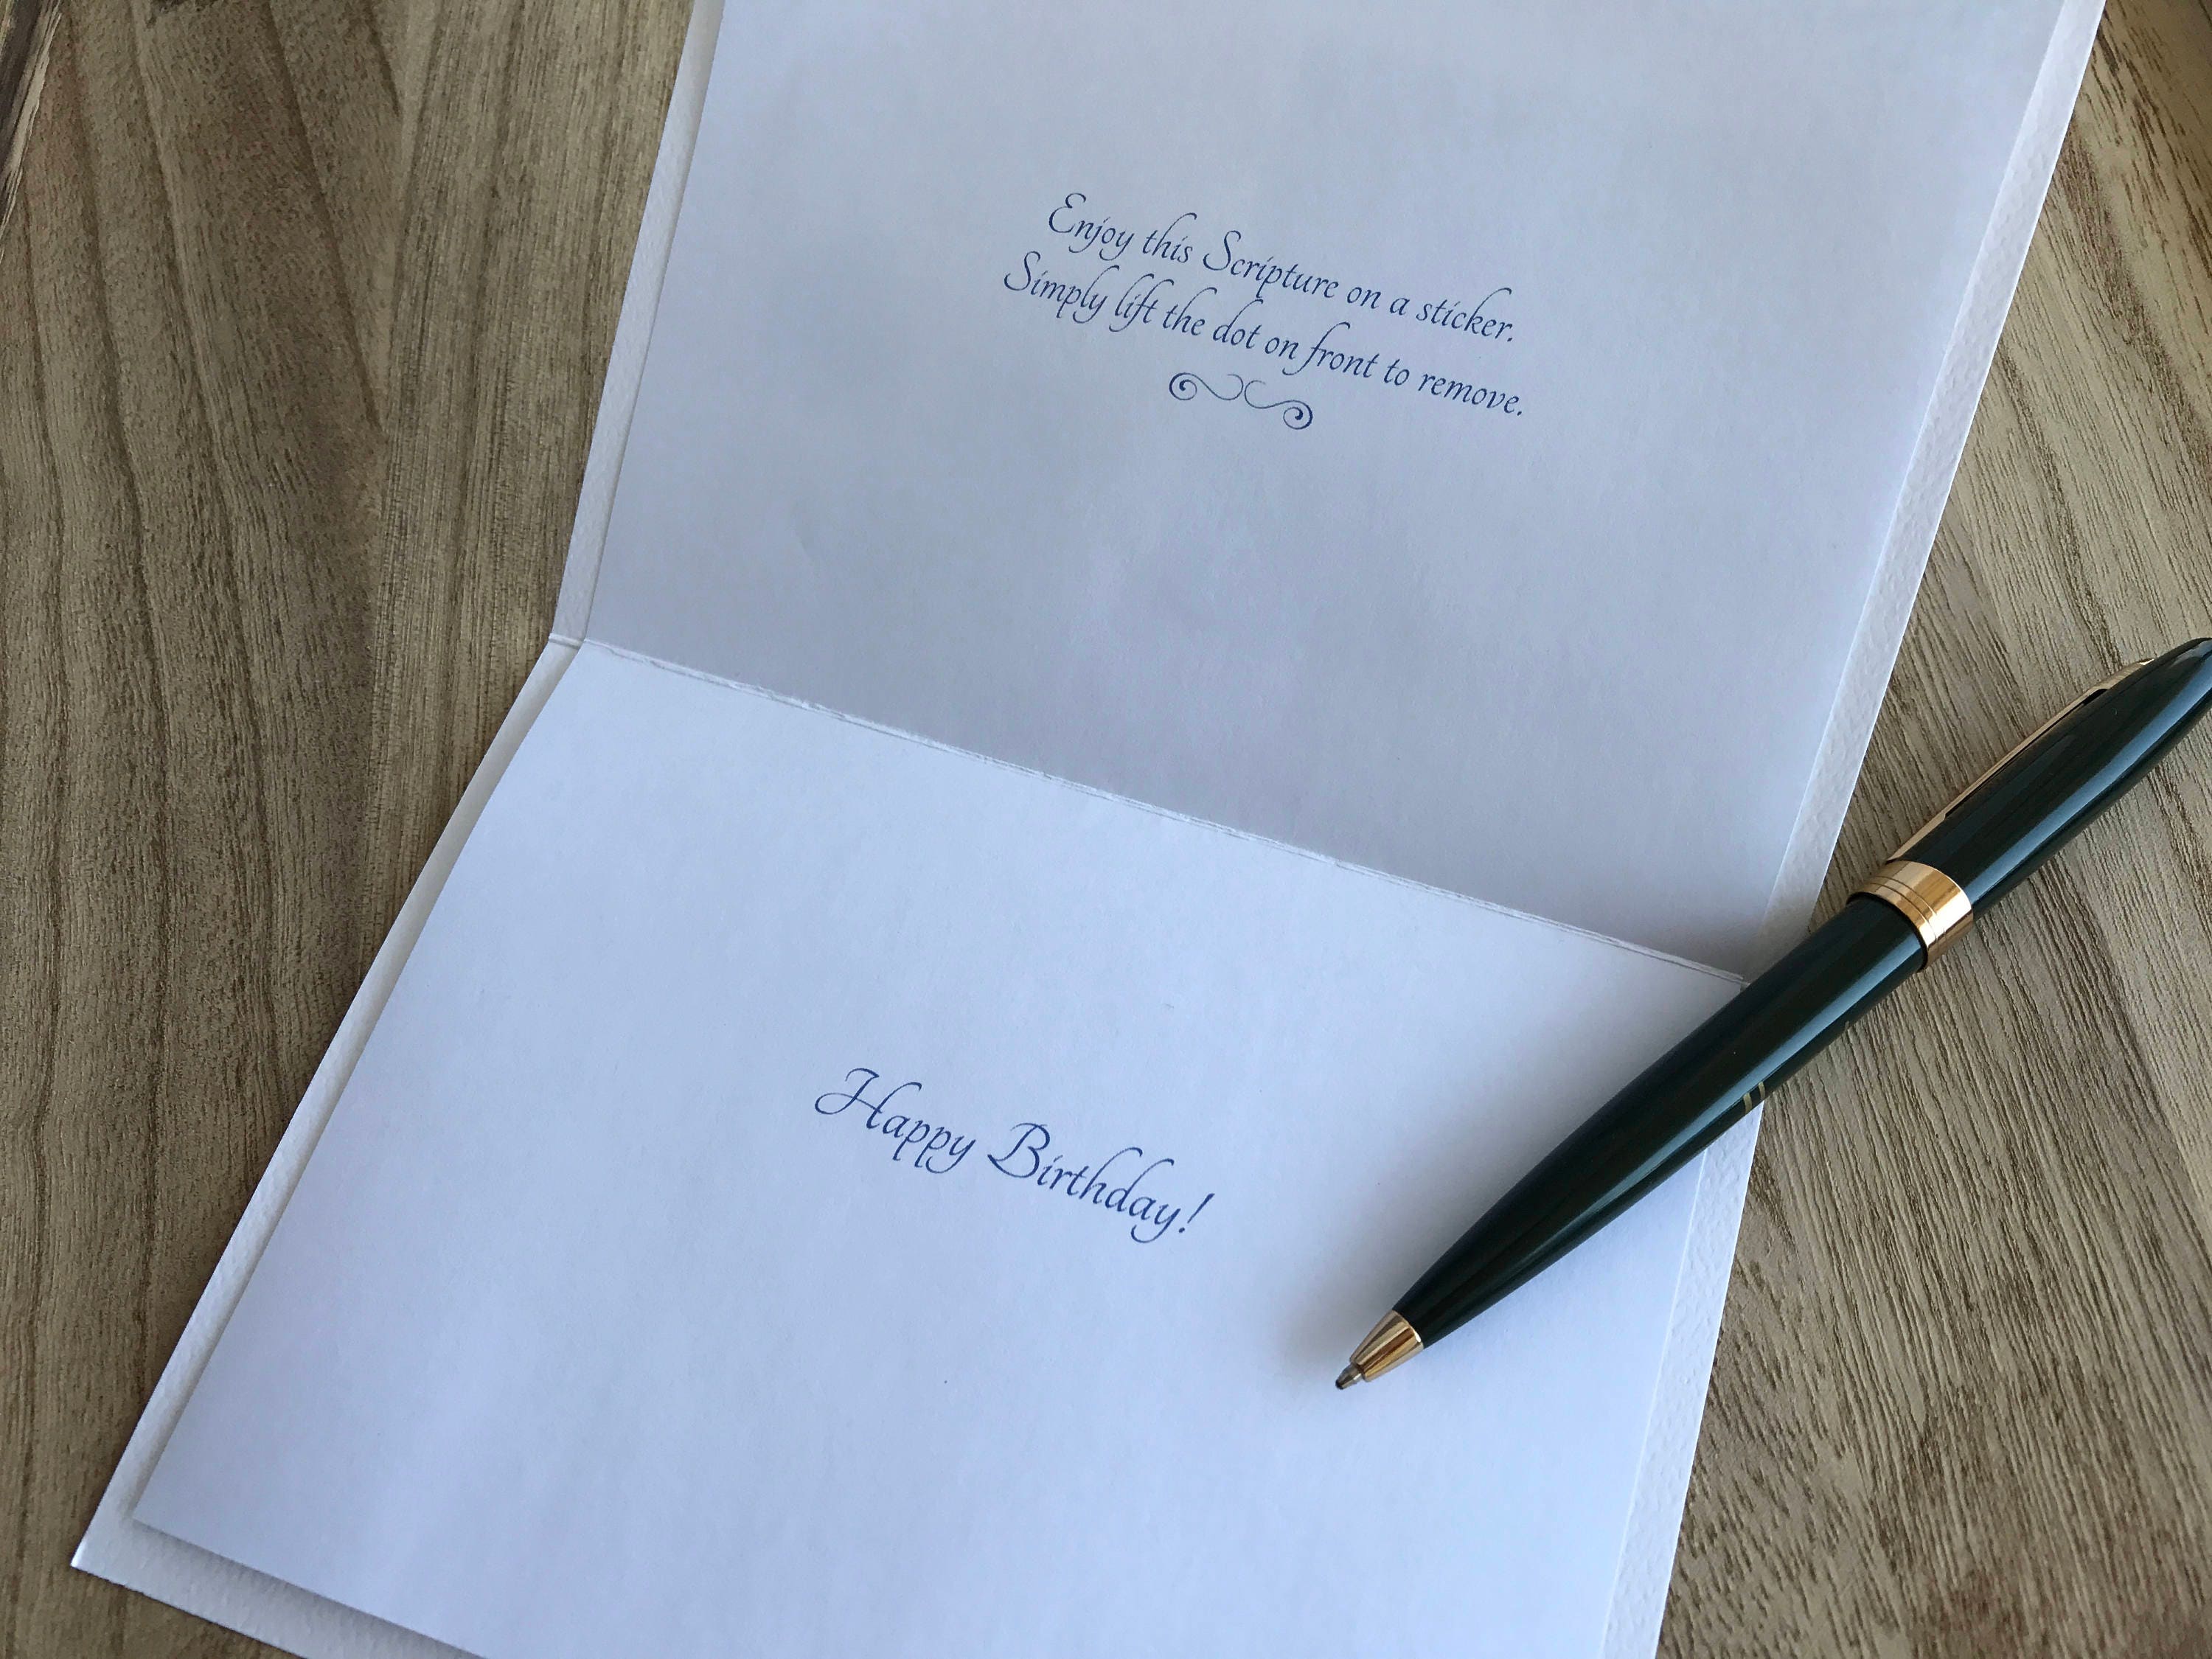 Enjoy this Scripture on a sticker.
Simply lift the dot on front to remove.
Happy Birthday!